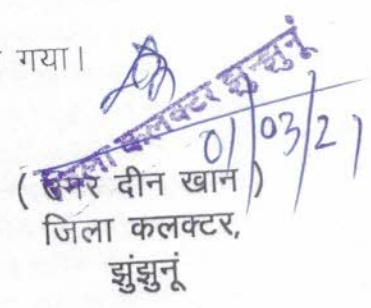 गया।
जिला कलक्टर झुन्झुनूं
01/03/21
( उमर दीन खान )
जिला कलक्टर,
झुंझुनूं